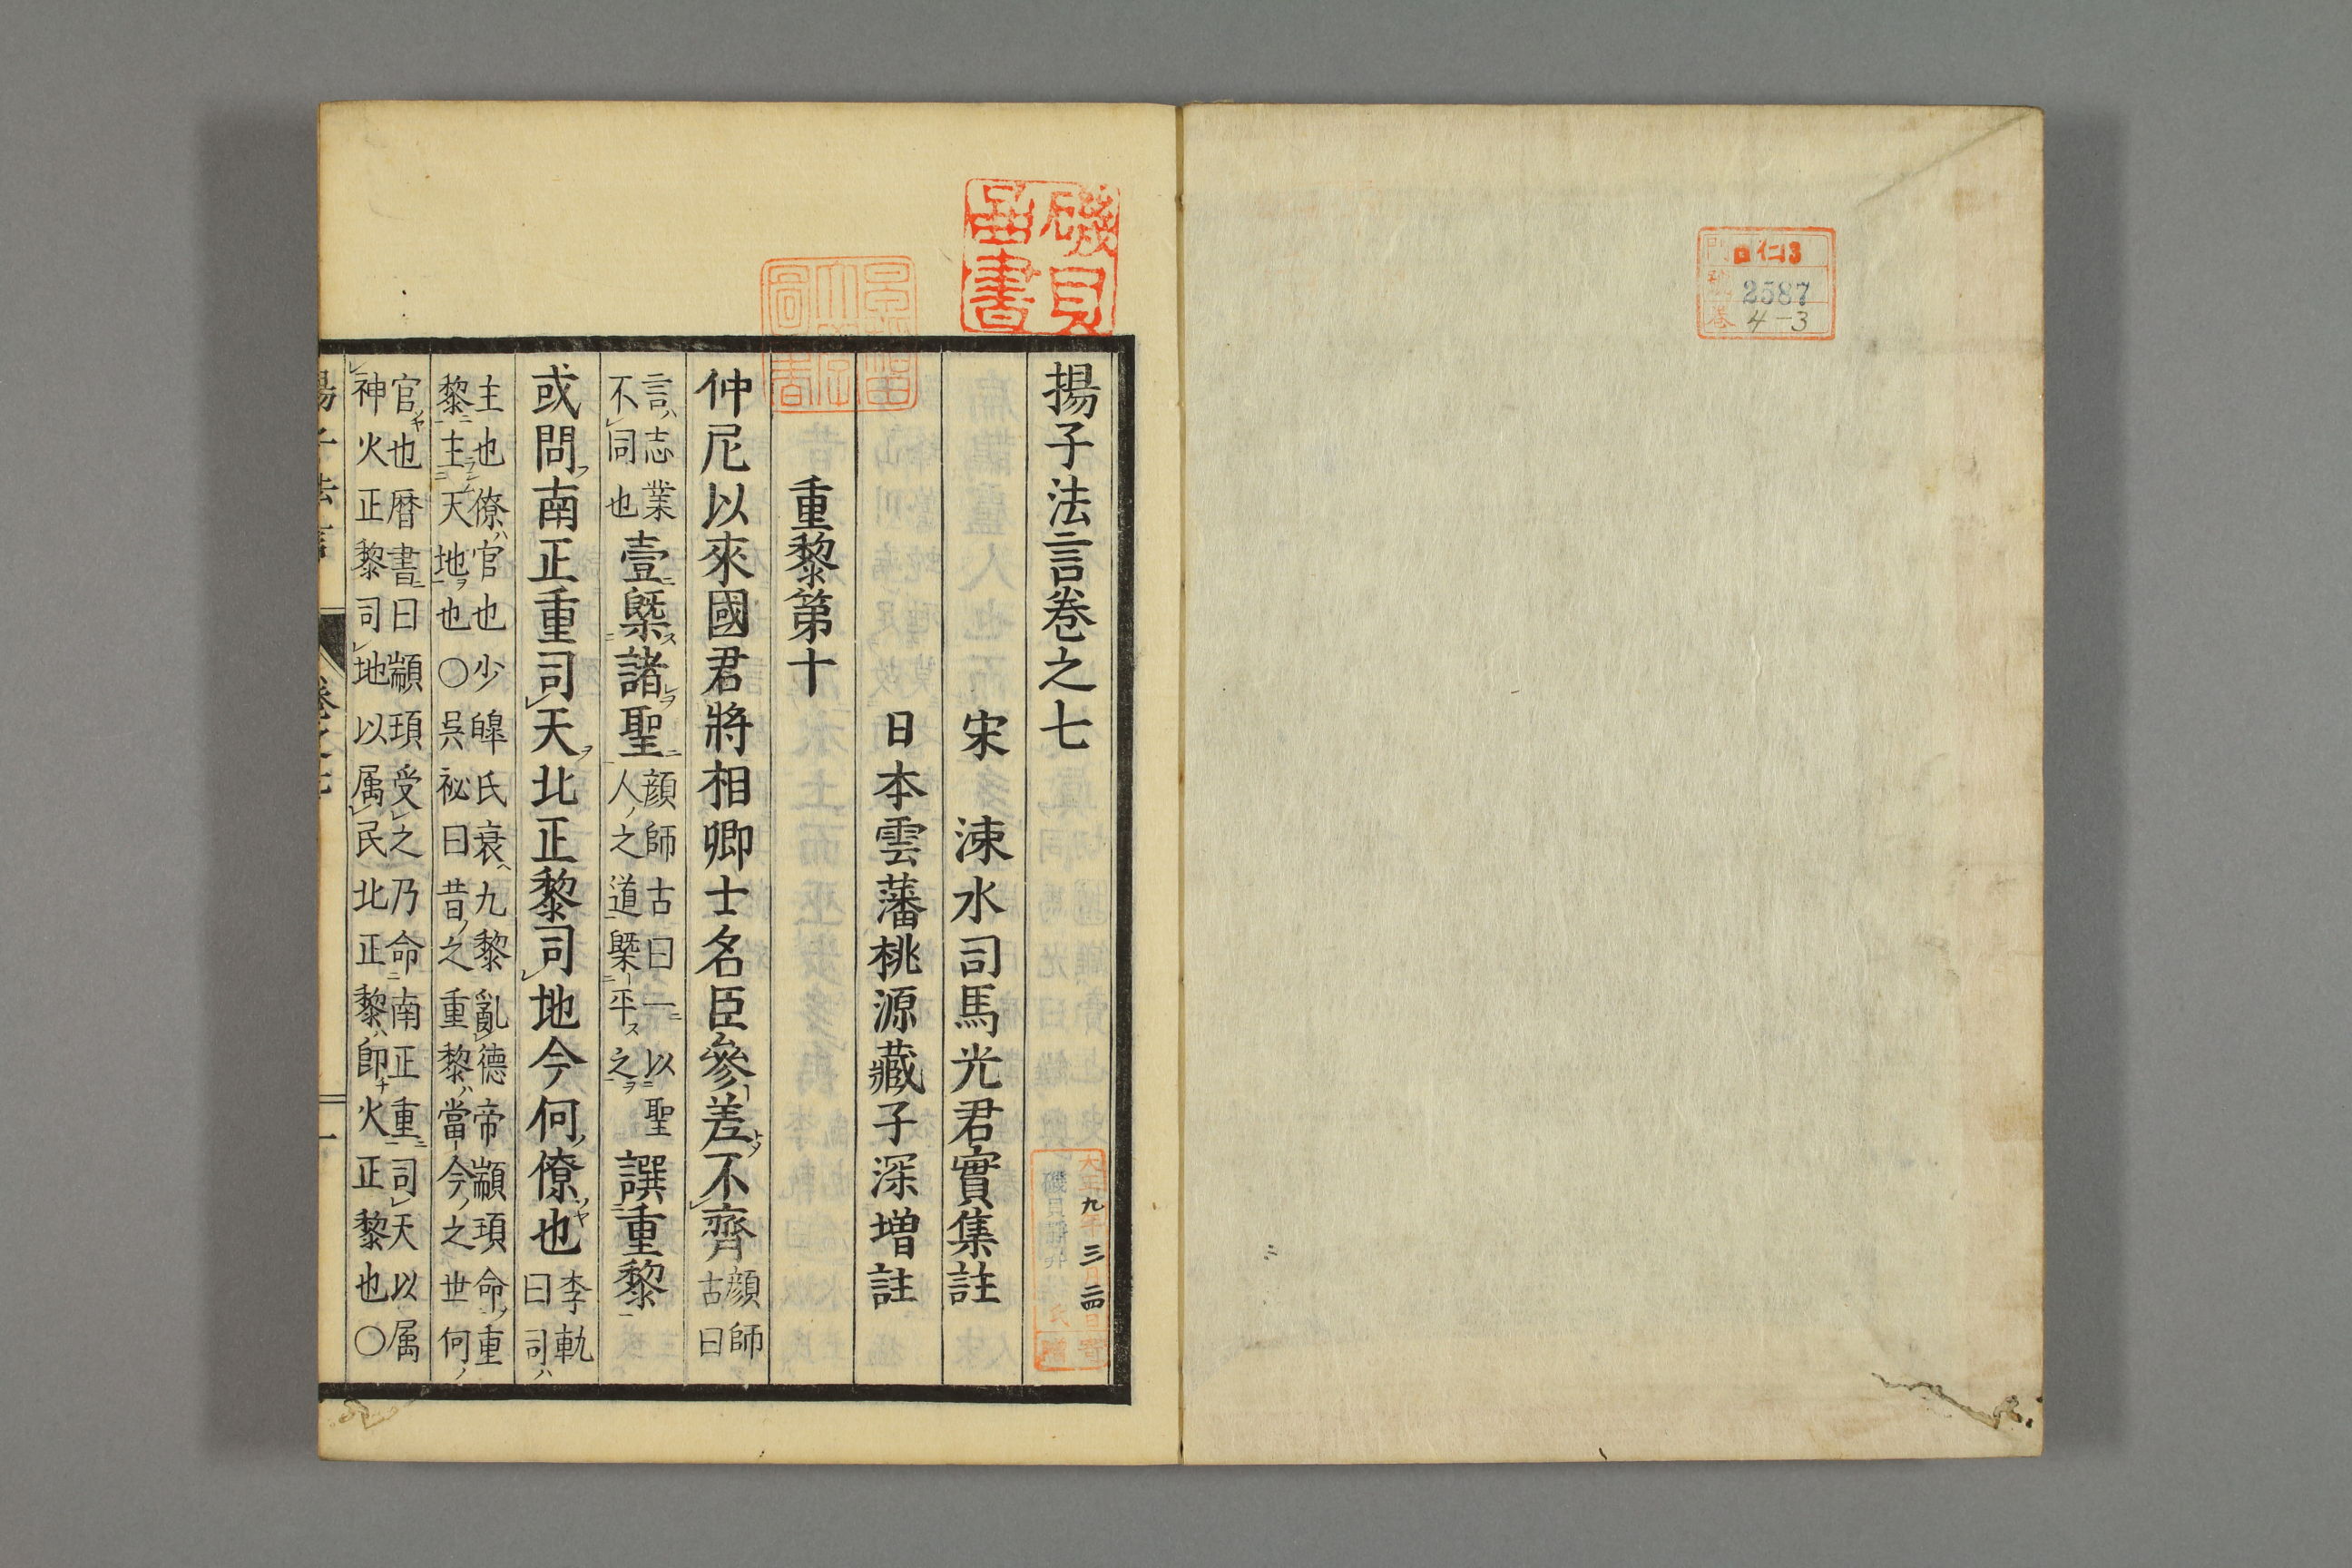 仁13
2587
4-3
磯貝
圖書
揚子法言卷之七
宋 涑水司馬光君實集註
日本雲藩桃源藏子深增註
重黎第十
仲尼以來國君將相卿士名臣參差不齊顏師古曰
言志業不同也壹槩諸聖顏師古曰一以聖人之道槩平之譔重黎
或問南正重司天北正黎司地今何僚也李軌曰司
主也僚官也少皥氏衰九黎亂德帝顓頊命重
黎主天地也〇吳祕曰昔之重黎當今之世何
官也曆書曰顓頊受之乃命南正重司天以属
神火正黎司地以属民北正黎卽火正黎也〇
九 三 二四